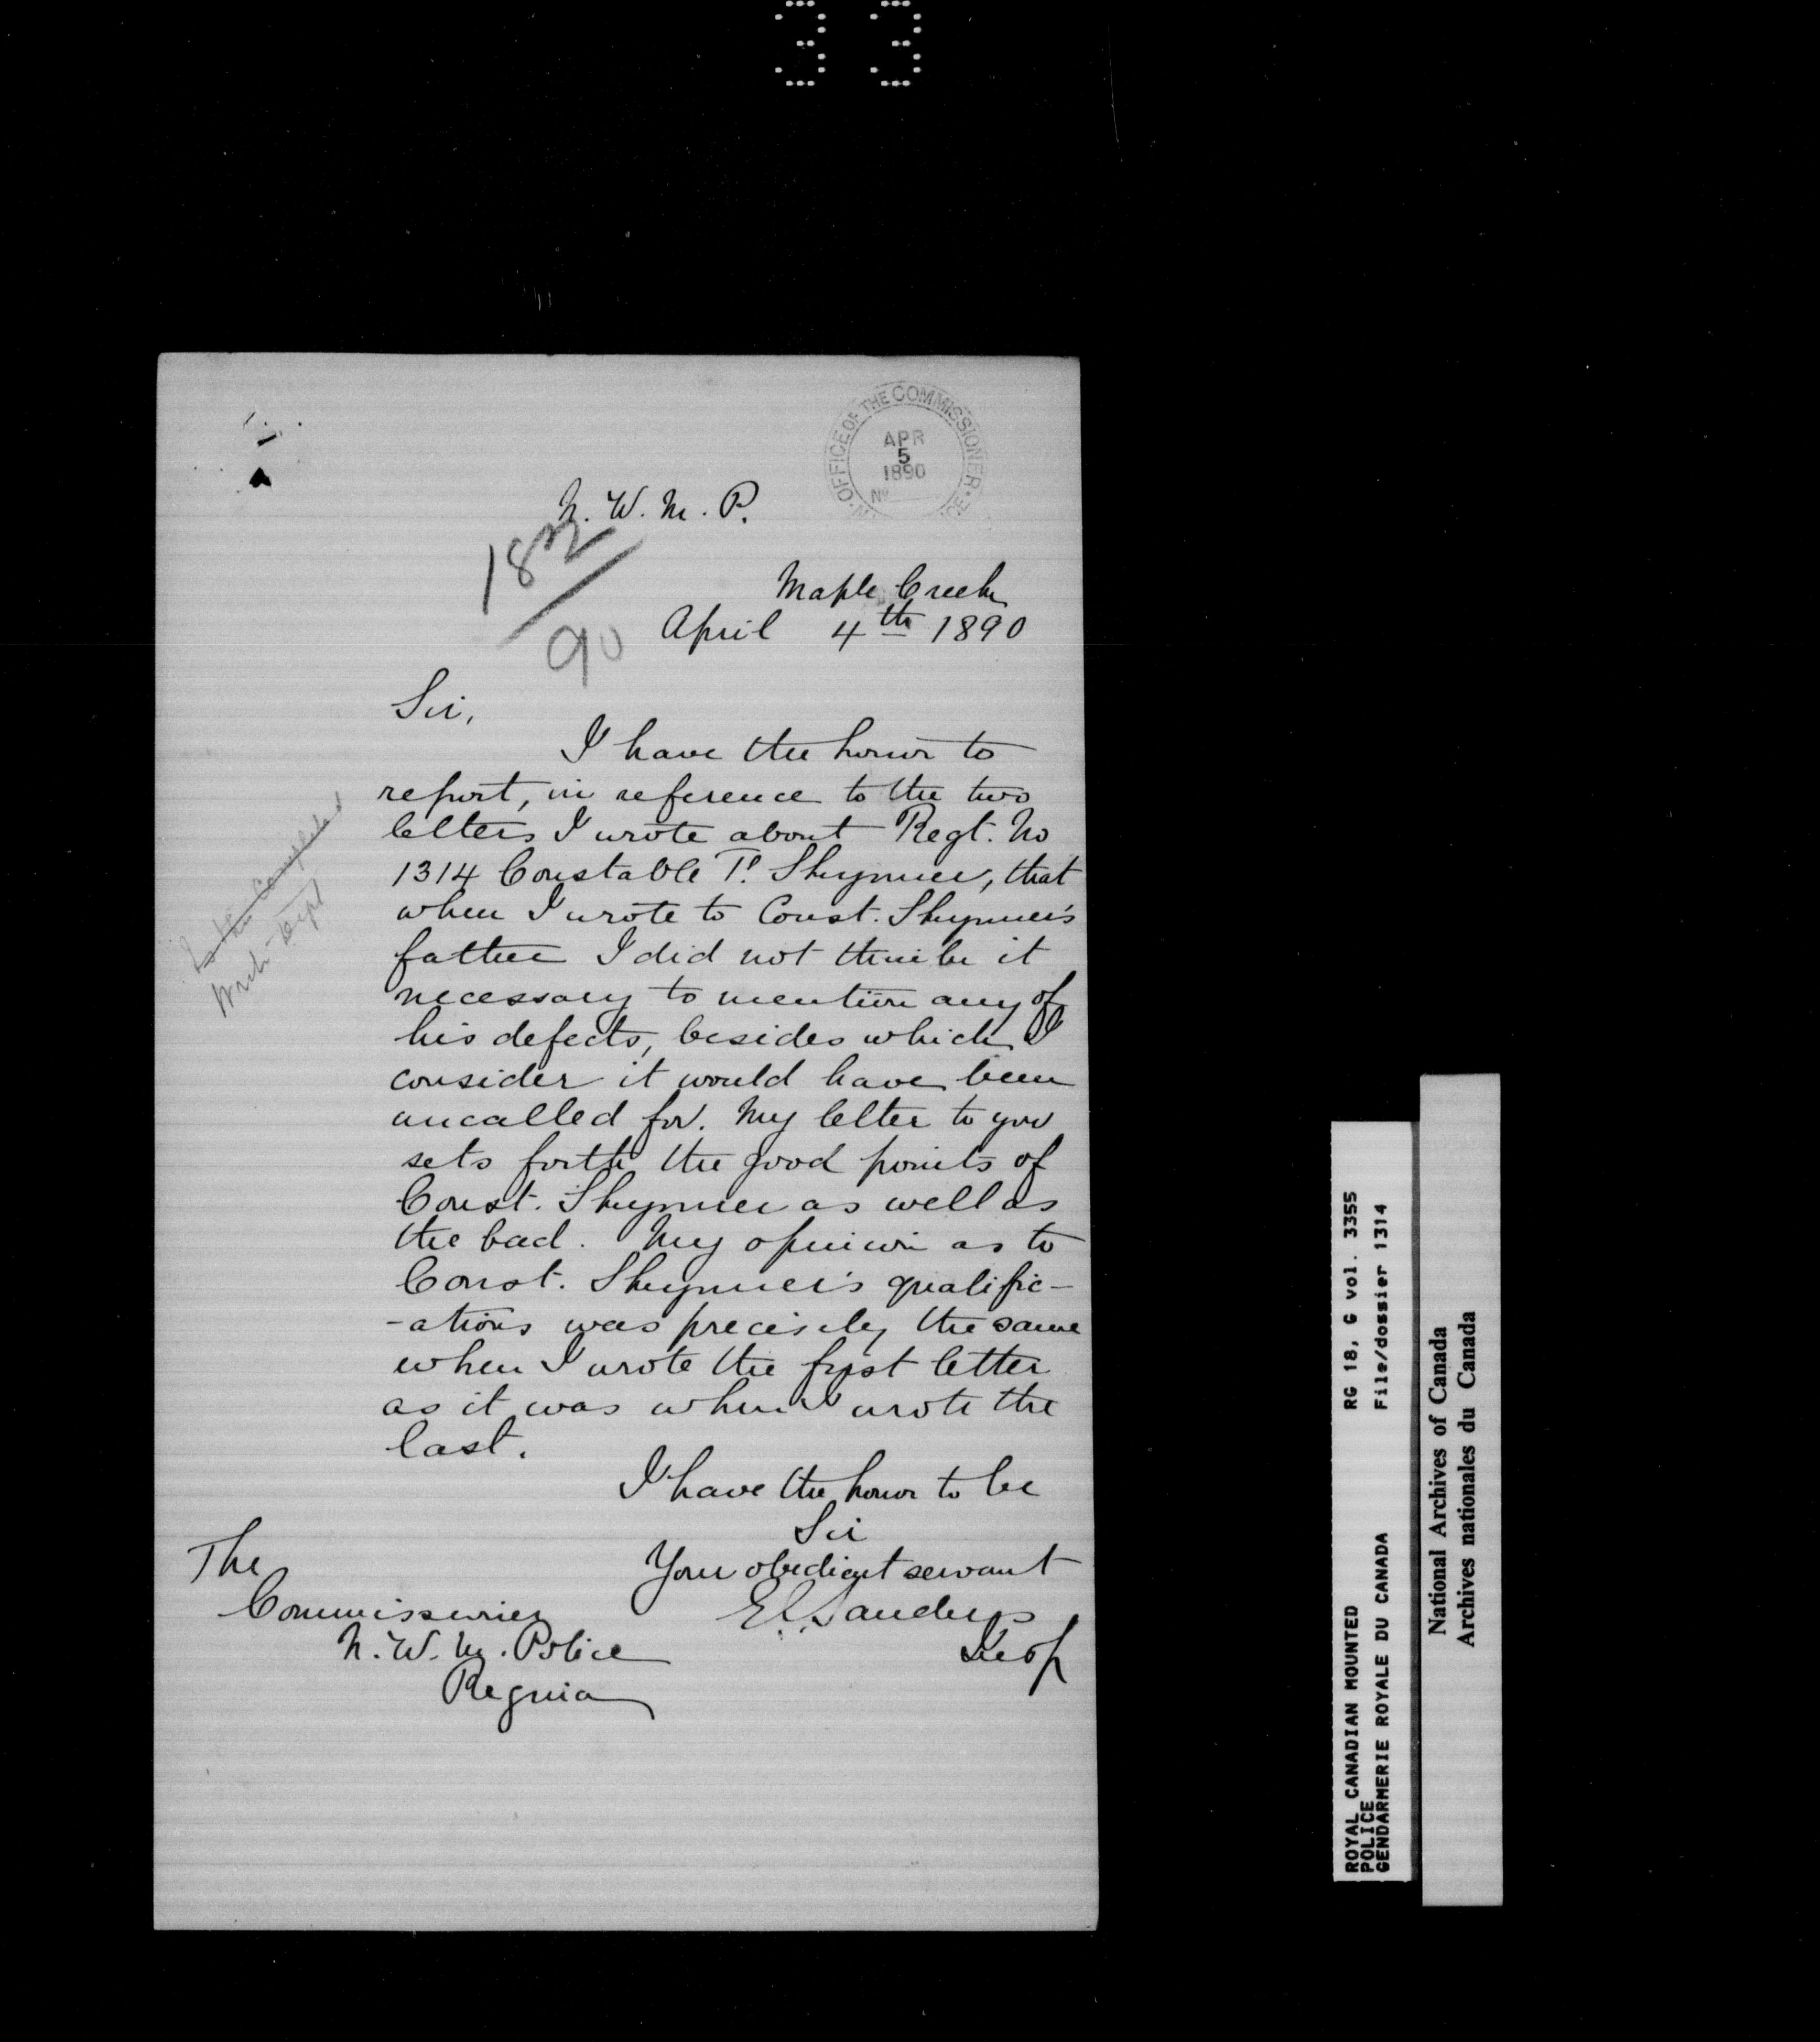 33
OFFICE OF THE COMMISSIONER
APR
5
1890
No
N. W. M. P.
90
Maple Creek
April 4th 1890
Sir,
I have the honor to
report, in reference to the two
letters I wrote about Regt. No
1314 Constable T. Shynner, that
when I wrote to Const. Shynner's
father I did not think it
necessary to mention any of
his defects, besides which I
consider it would have been
uncalled for. My letter to you
sets forth the good points of
Const. Shynner as well as
the bad. My opinion as to
Const. Shynner's qualific-
-ations was precisely the same
when I wrote the first letter
as it was when I wrote the
last.
I have the honor to be
Sir
Your obedient servant
Sanders
The
Commissioner
N. W. M. Police
Regina
ROYAL CANADIAN MOUNTED RG 18, G vol. 3355
POLICE File/dossier 1314
GENDARMERIE ROYALE DU CANADA
National Archives of Canada
Archives nationales du Canada